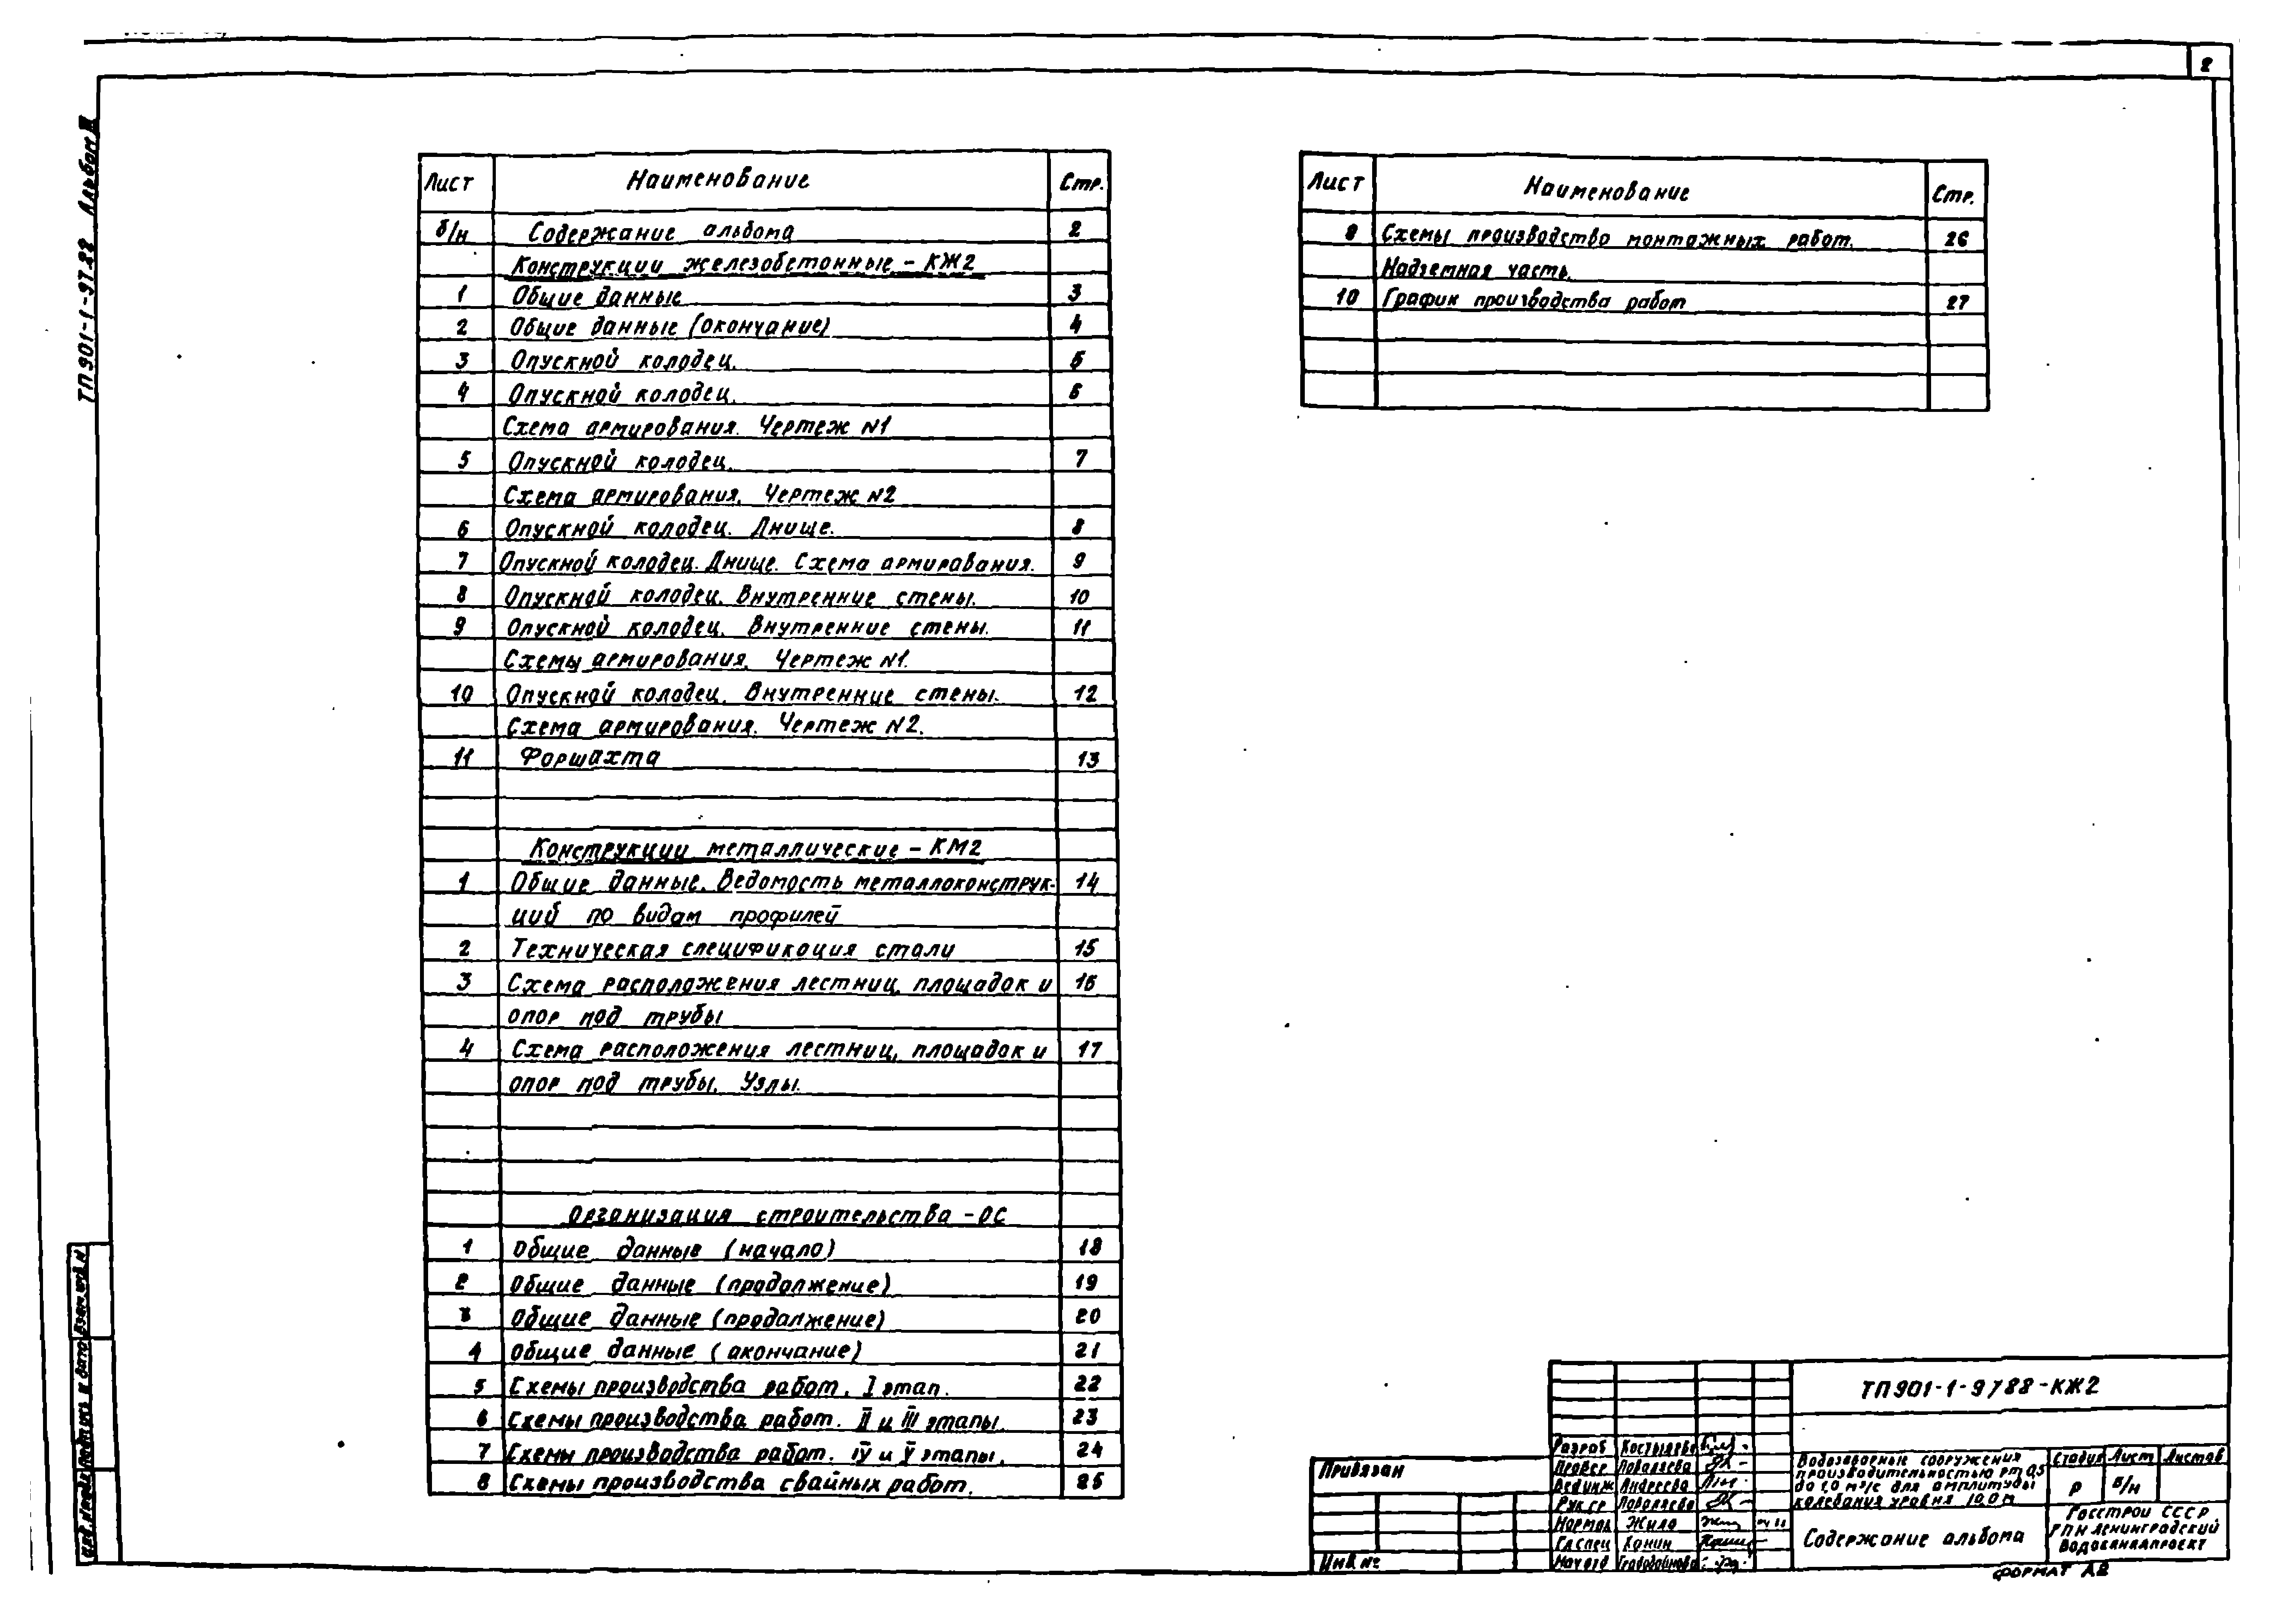 2
ТП 901-1-97.88 Альбом III
Лист Наименование Стр.
б/н Содержание альбома 2
Конструкции железобетонные - КЖ2
1 Общие данные 3
2 Общие данные (окончание) 4
3 Опускной колодец. 5
4 Опускной колодец. 6
Схема армирования. Чертеж N1
5 Опускной колодец. 7
Схема армирования. Чертеж N2
6 Опускной колодец. Днище. 8
7 Опускной колодец. Днище. Схема армирования. 9
8 Опускной колодец. Внутренние стены. 10
9 Опускной колодец. Внутренние стены. 11
Схемы армирования. Чертеж N1.
10 Опускной колодец. Внутренние стены. 12
Схема армирования. Чертеж N2.
11 Форшахта 13
Конструкции металлические - КМ2
1 Общие данные. Ведомость металлоконструк- 14
ций по видам профилей
2 Техническая спецификация стали 15
3 Схема расположения лестниц, площадок и 16
опор под трубы
4 Схема расположения лестниц, площадок и 17
опор под трубы. Узлы.
Организация строительства - ОС
1 Общие данные (начало) 18
2 Общие данные (продолжение) 19
3 Общие данные (продолжение) 20
4 Общие данные (окончание) 21
5 Схемы производства работ. I этап. 22
6 Схемы производства работ. II и III этапы. 23
7 Схемы производства работ. IV и V этапы. 24
8 Схемы производства свайных работ. 25
Лист Наименование Стр.
9 Схемы производства монтажных работ. 26
Надземная часть.
10 График производства работ 27
Взам.инв.N
Подпись и дата
Инв.N подл.
Привязан
Инв №
ТП 901-1-97.88-КЖ2
Разраб
Провер Поваляева
Вед.инж Андреева
Рук.гр Поваляева
Нормок Жила
Гл.спец Канин
Нач.отд
Водозаборные сооружения
производительностью от 0,5
до 1,0 м³/с для амплитуды
колебания уровня 10,0 м
Стадия Лист Листов
Р б/н
Содержание альбома
Госстрой СССР
ГПИ Ленинградский
Водоканалпроект
Формат А2